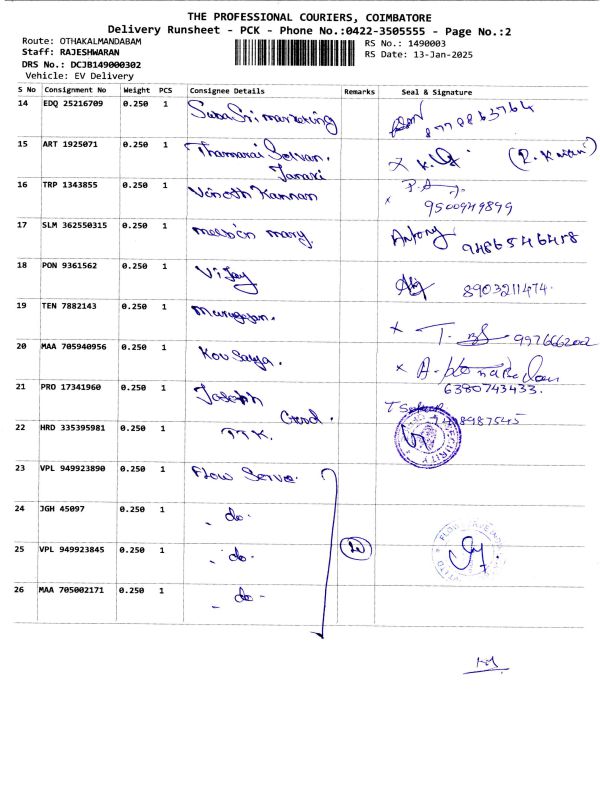 THE PROFESSIONAL COURIERS, COIMBATORE
Delivery Runsheet - PCK - Phone No.:0422-3505555 - Page No.:2
Route: OTHAKALMANDABAM RS No.: 1490003
Staff: RAJESHWARAN RS Date: 13-Jan-2025
DRS No.: DCJB149000302
Vehicle: EV Delivery
S No Consignment No Weight PCS Consignee Details Remarks Seal & Signature
14 EDQ 25216709 0.250 1 marketing 8778863764
15 ART 1925071 0.250 1 Thamarai Selvan.
Janaki
16 TRP 1343855 0.250 1 Vinoth Kannan 9500949899
17 SLM 362550315 0.250 1 mary. Antony 9486546458
18 PON 9361562 0.250 1 Vijay 8903211474.
19 TEN 7882143 0.250 1 Murugan. 9976662002
20 MAA 705940956 0.250 1
6380743433.
21 PRO 17341960 0.250 1 Joseph
22 HRD 335395981 0.250 1 SECURITY
23 VPL 949923890 0.250 1 Flow Serve.
24 JGH 45097 0.250 1 - do -
25 VPL 949923845 0.250 1 - do -
26 MAA 705002171 0.250 1 - do -